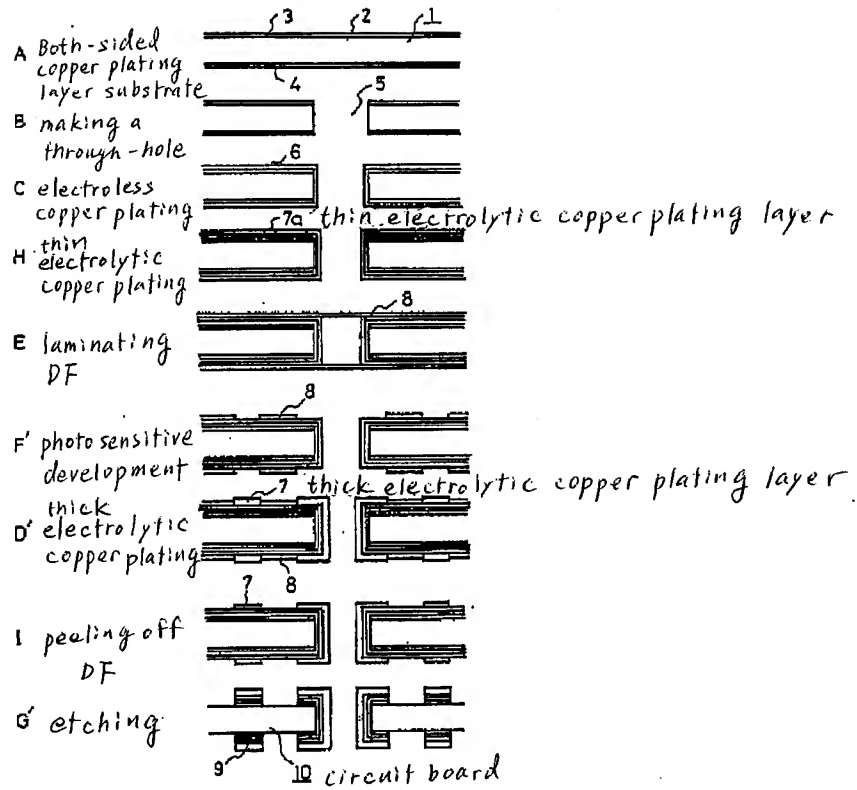 3 2 1
A Both-sided
copper plating
layer substrate
4 5
B making a
through-hole
6
C electroless
copper plating
7a thin electrolytic copper plating layer
H thin
electrolytic
copper plating
8
E laminating
DF
8
F' photosensitive
development
7 thick electrolytic copper plating layer
thick
D' electrolytic
copper plating
8
7
I peeling off
DF
G' etching
9 10 circuit board